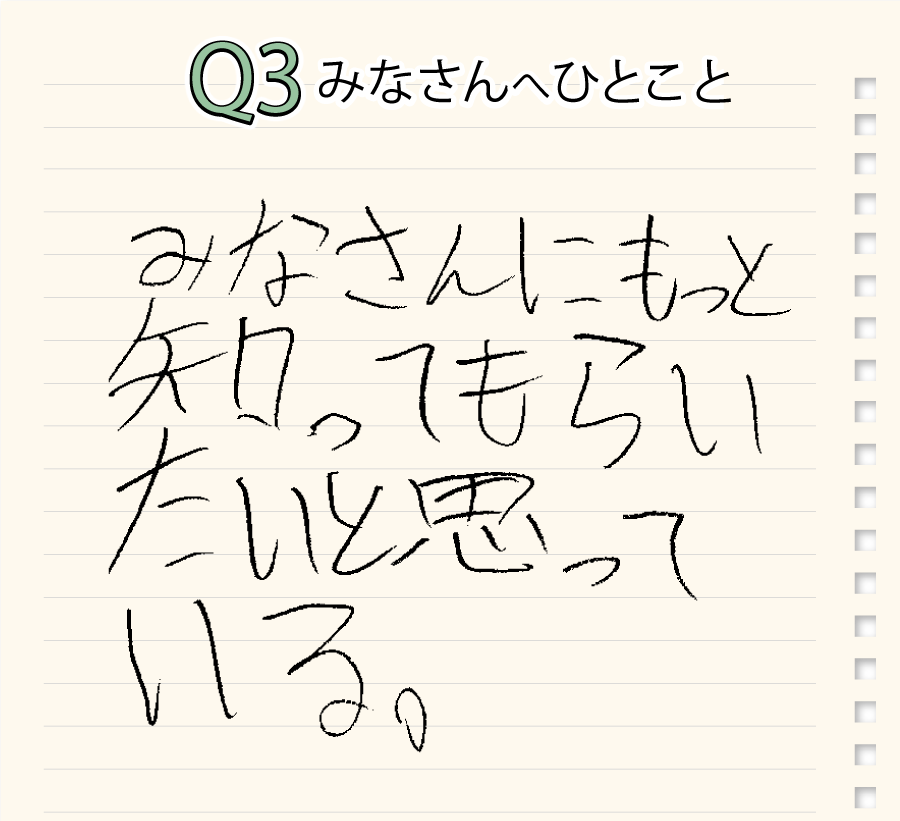 Q3 みなさんへひとこと
みなさんにもっと
知ってもらい
たいと思って
いる。